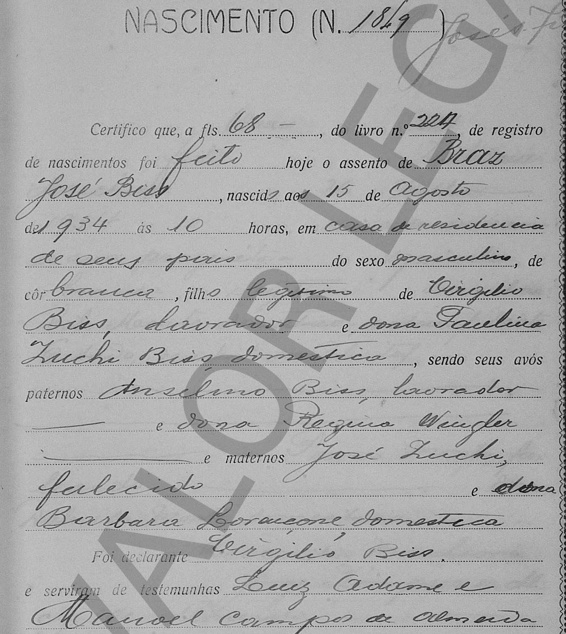 NASCIMENTO (N. 1849)
José
Certifico que, a fls. 68 -, do livro n.º 224, de registro
de nascimentos foi feito hoje o assento de Braz
José Biss, nascido aos 15 de Agosto
de 1934 ás 10 horas, em casa de residencia
de seus pais do sexo masculino, de
côr branca, filho legitimo de Virgilio
Biss, lavrador e dona Paulina
Zuchi Biss, domestica, sendo seus avós
paternos Anselmo Biss, lavrador
e dona Regina Wingler
e maternos José Zuchi,
falecido e dona
Barbara domestica
Foi declarante Virgilio Biss.
e serviram de testemunhas Luiz Adame e
Manoel Campos de Almeida
VALOR LEGAL